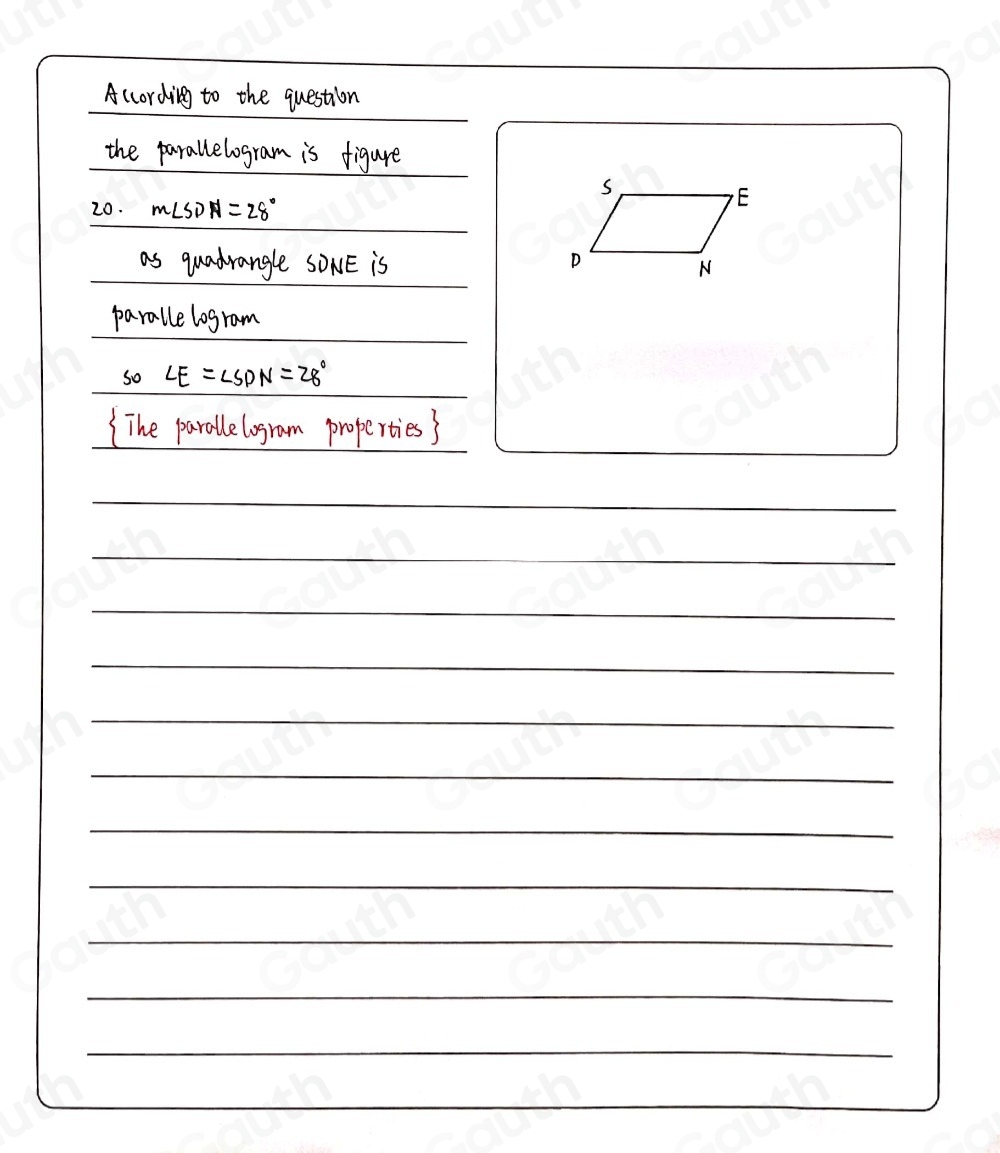 According to the question
the parallelogram is figure
20. m∠SDN = 28°
as quadrangle SDNE is
parallelogram
so ∠E = ∠SDN = 28°
{The parallelogram properties}
S
E
D
N
Gauth